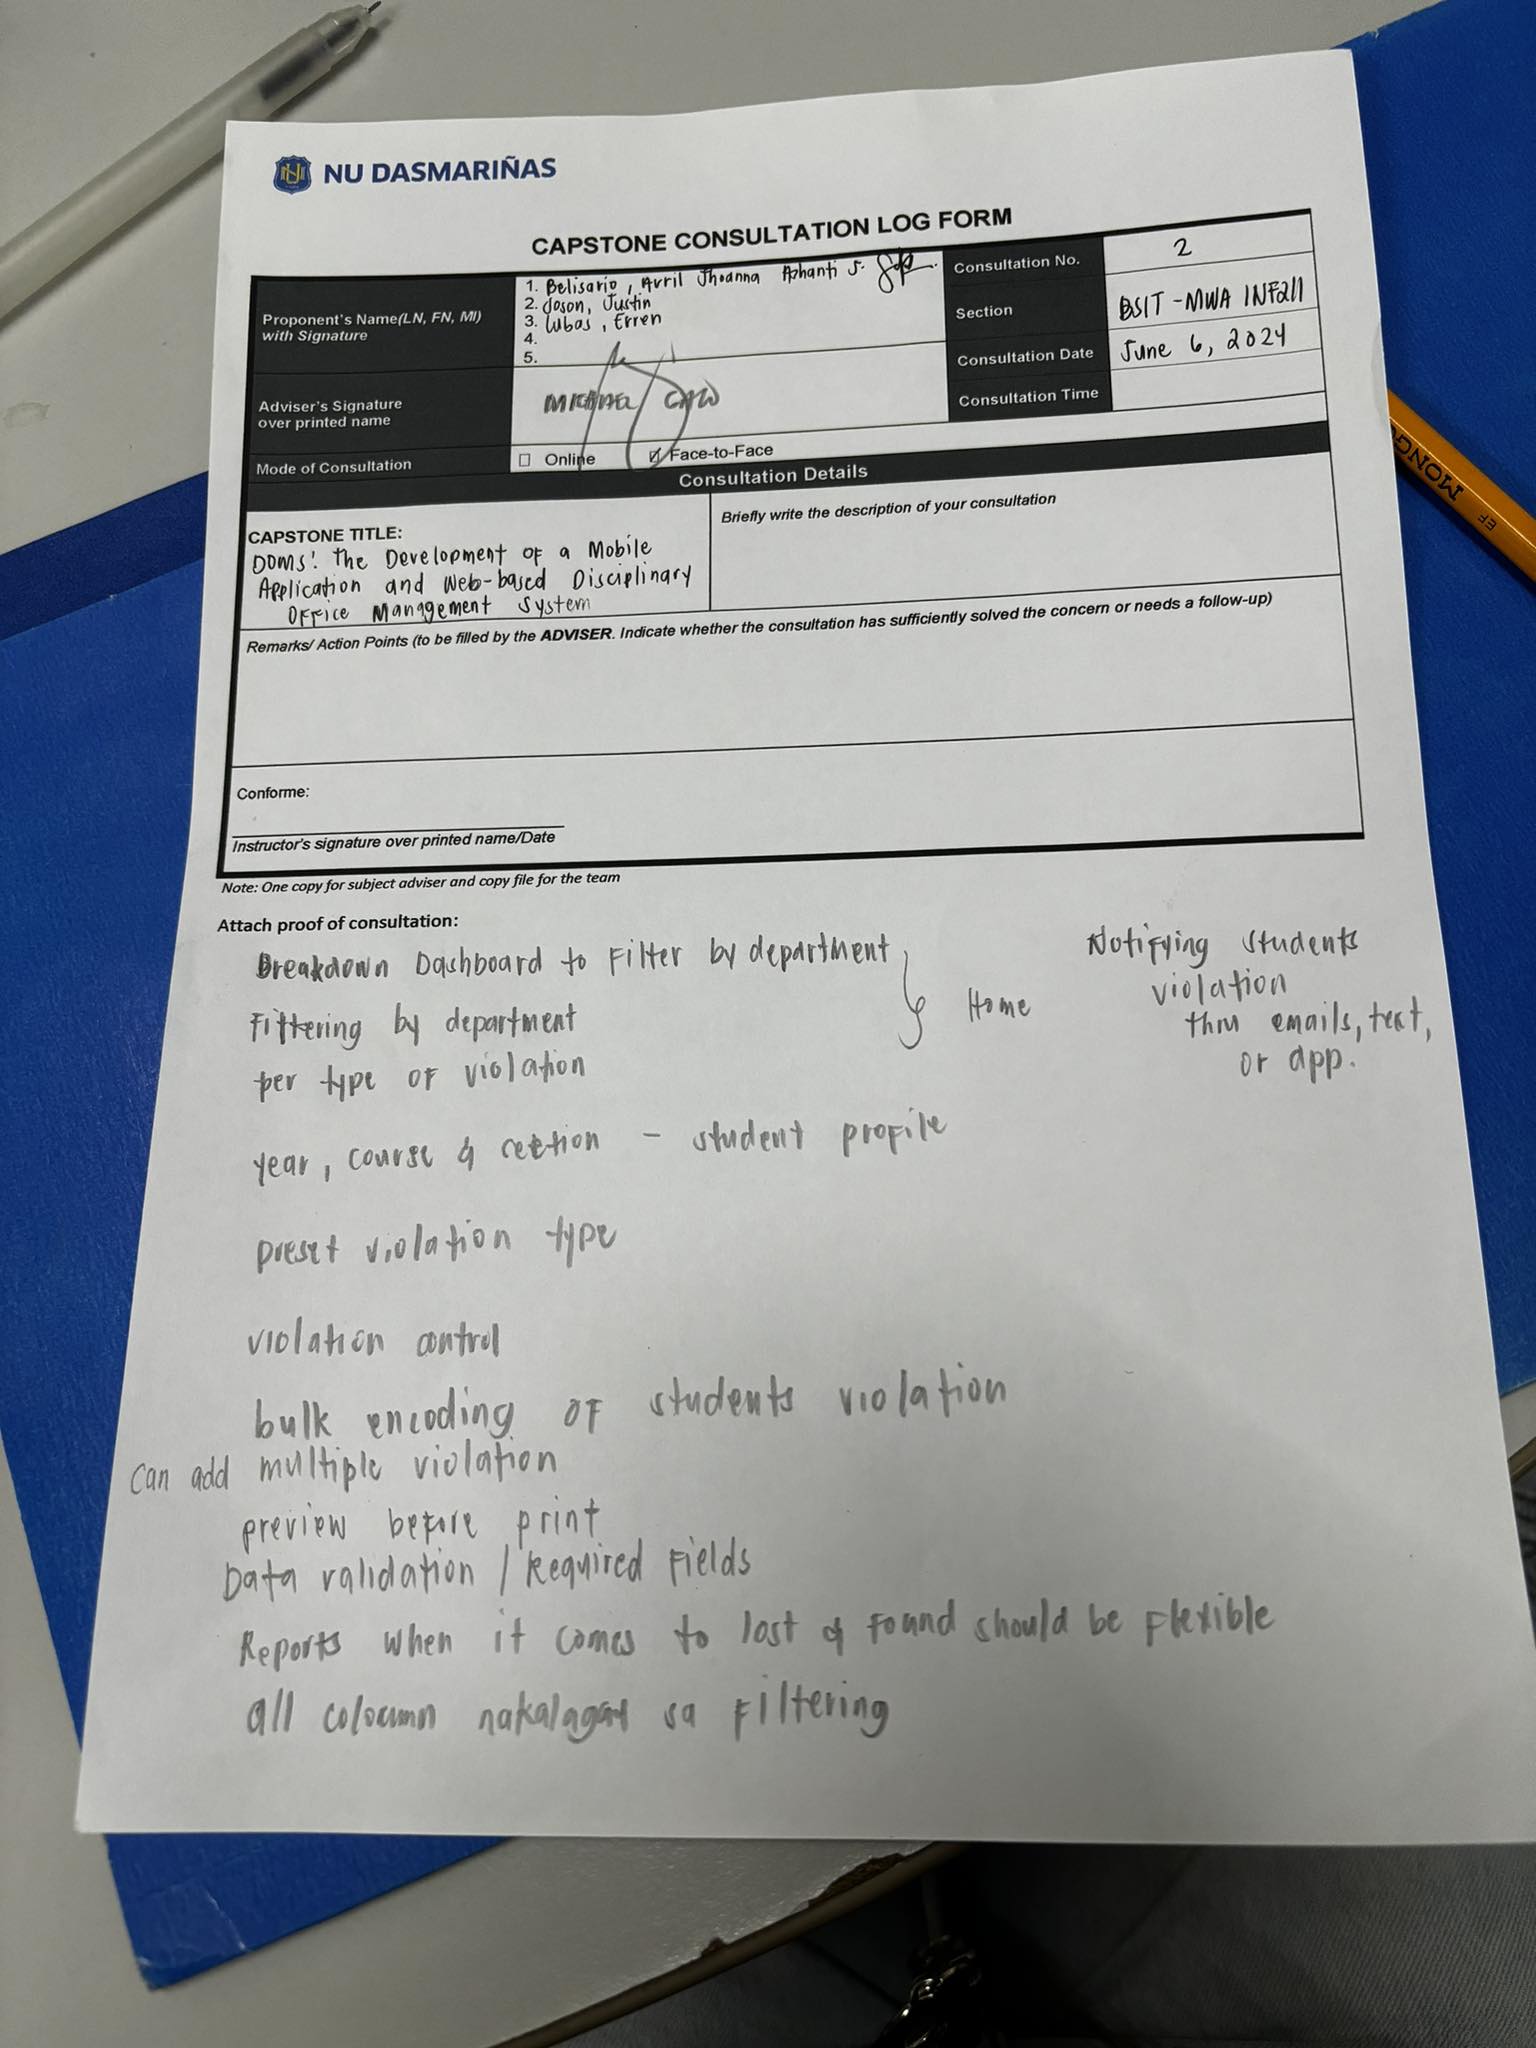 NU DASMARIÑAS
CAPSTONE CONSULTATION LOG FORM
Proponent's Name(LN, FN, MI)
with Signature
1. Belisario, Avril Jhoanna Ashanti S.
2. Joson, Justin
3. Lubas, Erren
4.
5.
Consultation No.
2
Section
BSIT-MWA INF211
Consultation Date
June 6, 2024
Consultation Time
Adviser's Signature
over printed name
Mode of Consultation
☐ Online
☑ Face-to-Face
Consultation Details
CAPSTONE TITLE:
DOMS: The Development of a Mobile
Application and Web-based Disciplinary
Office Management System
Briefly write the description of your consultation
Remarks/ Action Points (to be filled by the ADVISER. Indicate whether the consultation has sufficiently solved the concern or needs a follow-up)
Conforme:
Instructor's signature over printed name/Date
Note: One copy for subject adviser and copy file for the team
Attach proof of consultation:
Breakdown Dashboard to Filter by department
Filtering by department
per type of violation
Home
Notifying students
violation
thru emails, text,
or app.
year, course & section - student profile
preset violation type
violation control
bulk encoding of students violation
can add multiple violation
preview before print
Data validation / Required Fields
Reports when it comes to lost & found should be flexible
all coloumn nakalagay sa filtering
MONGOL
EF